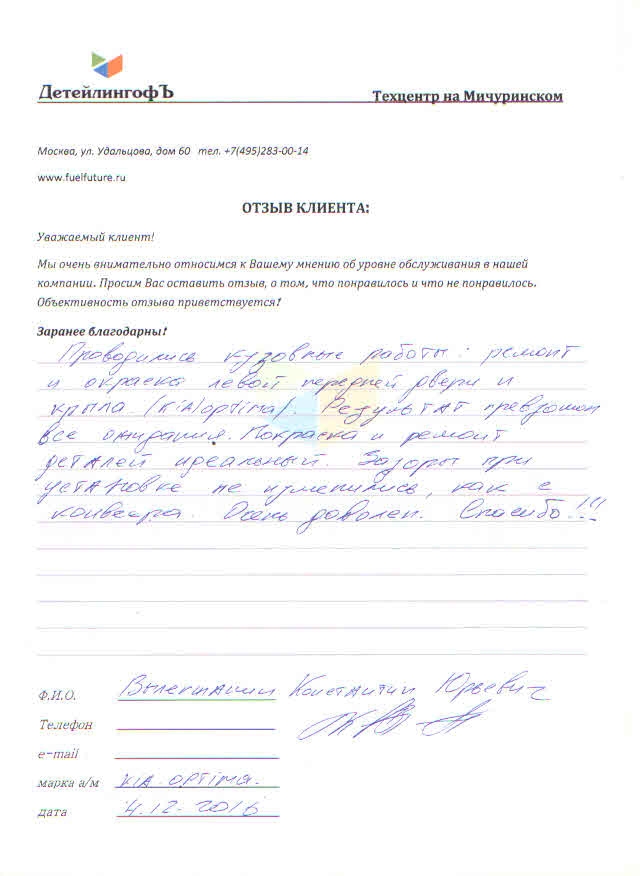 ДетейлингофЪ
Техцентр на Мичуринском
Москва, ул. Удальцова, дом 60 тел. +7(495)283-00-14
www.fuelfuture.ru
ОТЗЫВ КЛИЕНТА:
Уважаемый клиент!
Мы очень внимательно относимся к Вашему мнению об уровне обслуживания в нашей
компании. Просим Вас оставить отзыв, о том, что понравилось и что не понравилось.
Объективность отзыва приветствуется!
Заранее благодарны!
Проводились кузовные работы: ремонт
и окраска левой передней двери и
крыла (KIA optima). Результат превзошел
все ожидания. Покраска и ремонт
деталей идеальный. Зазоры при
установке не изменились, как с
конвеера. Очень доволен. Спасибо!!!
Ф.И.О. Константин Юрьевич
Телефон
e-mail
марка а/м KIA OPTIMA.
дата 4.12.2016